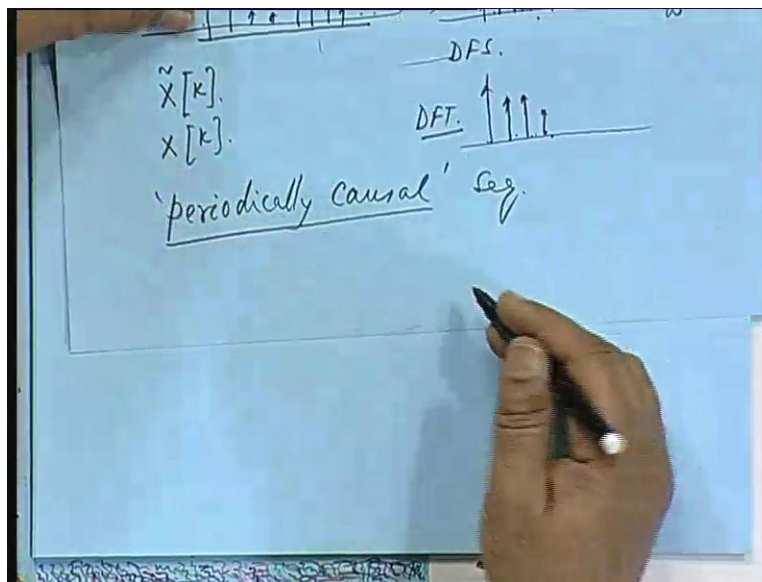 DFS.
X̃[k].
DFT.
X[k].
'periodically causal' Seq.